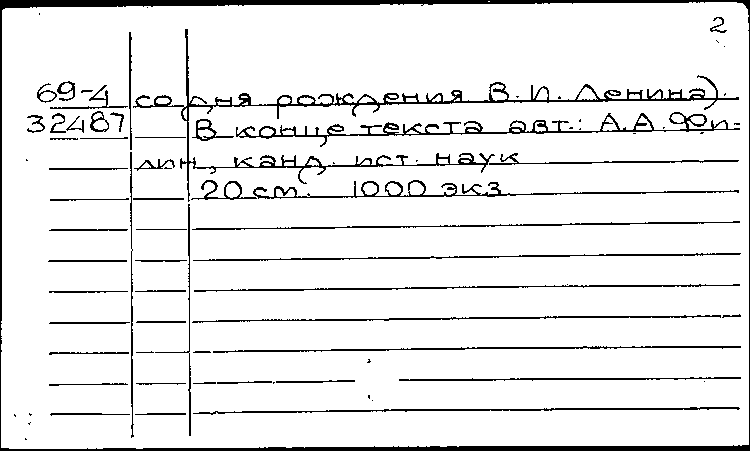 2
69-4 со дня рождения В. И. Ленина).
32487 В конце текста авт.: А. А. Фи-
лин, канд. ист. наук
20 см. 1000 экз.